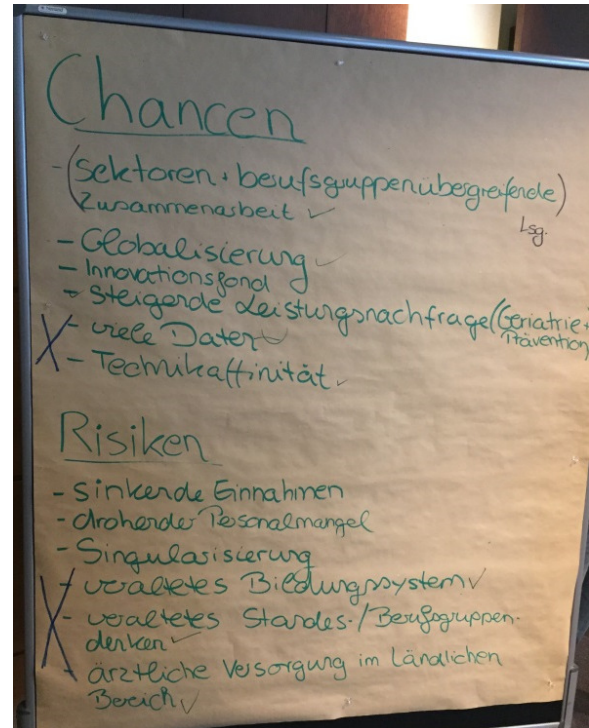 Chancen
- (Sektoren + berufsgruppenübergreifende)
Zusammenarbeit ✓
Lsg.
- Globalisierung ✓
- Innovationsfond
- Steigende Leistungsnachfrage (Geriatrie +
Prävention
X - viele Daten ✓
- Technikaffinität ✓
Risiken
- sinkende Einnahmen
- drohender Personalmangel
- Singularisierung
X - veraltetes Bildungssystem ✓
- veraltetes Standes-/Berufsgruppen-
denken ✓
- ärztliche Versorgung im Ländlichen
Bereich ✓